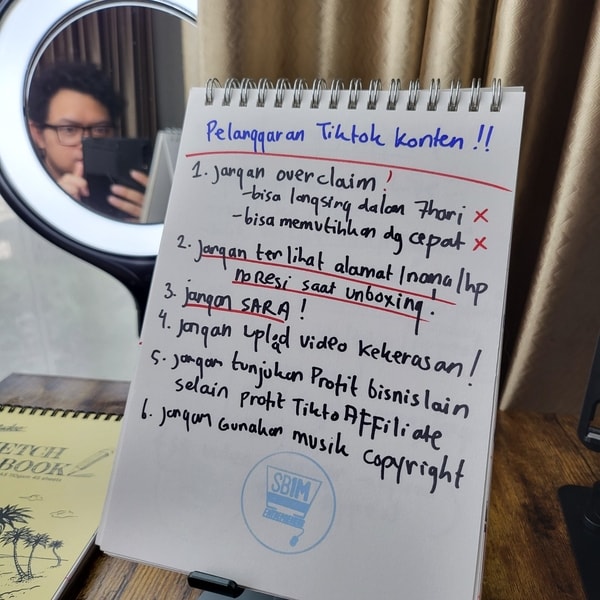 Pelanggaran Tiktok Konten !!
1. jangan overclaim !
-bisa langsing dalam 7hari ×
-bisa memutihkan dg cepat ×
2. jangan terlihat alamat/nama/hp
no resi saat unboxing!
3. jangan SARA !
4. jangan upload video kekerasan!
5. jangan tunjukan Profit bisnis lain
selain profit Tikto Affiliate
6. jangan Gunakan musik copyright
SB1M
SKETCH
BOOK